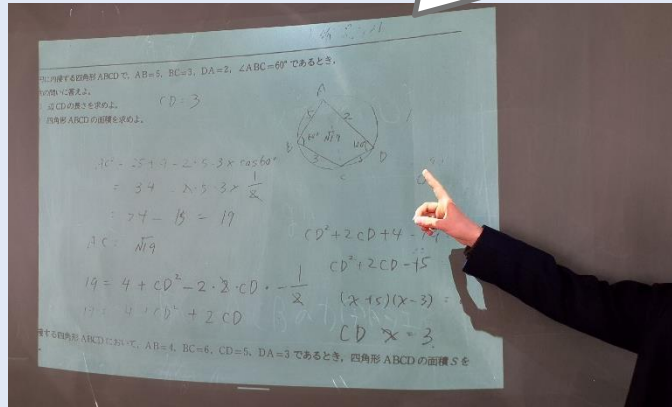 円に内接する四角形ABCDで, AB=5, BC=3, DA=2, ∠ABC=60°であるとき,
の問いに答えよ.
辺CDの長さを求めよ.
四角形ABCDの面積を求めよ.
CD=3
A
5
2
B
60°
√19
120°
D
3
C
AC = 25+9-2·5·3×cos60°
= 34 - 2·5·3×1/2
= 34 - 15 = 19
AC = √19
19 = 4 + CD² - 2·2·CD·-1/2
19 = 4 + CD² + 2CD
CD² + 2CD + 4 - 19
CD² + 2CD - 15
(x+5)(x-3) =
CD x = 3.
する四角形ABCDにおいて, AB=4, BC=6, CD=5, DA=3であるとき, 四角形ABCDの面積Sを